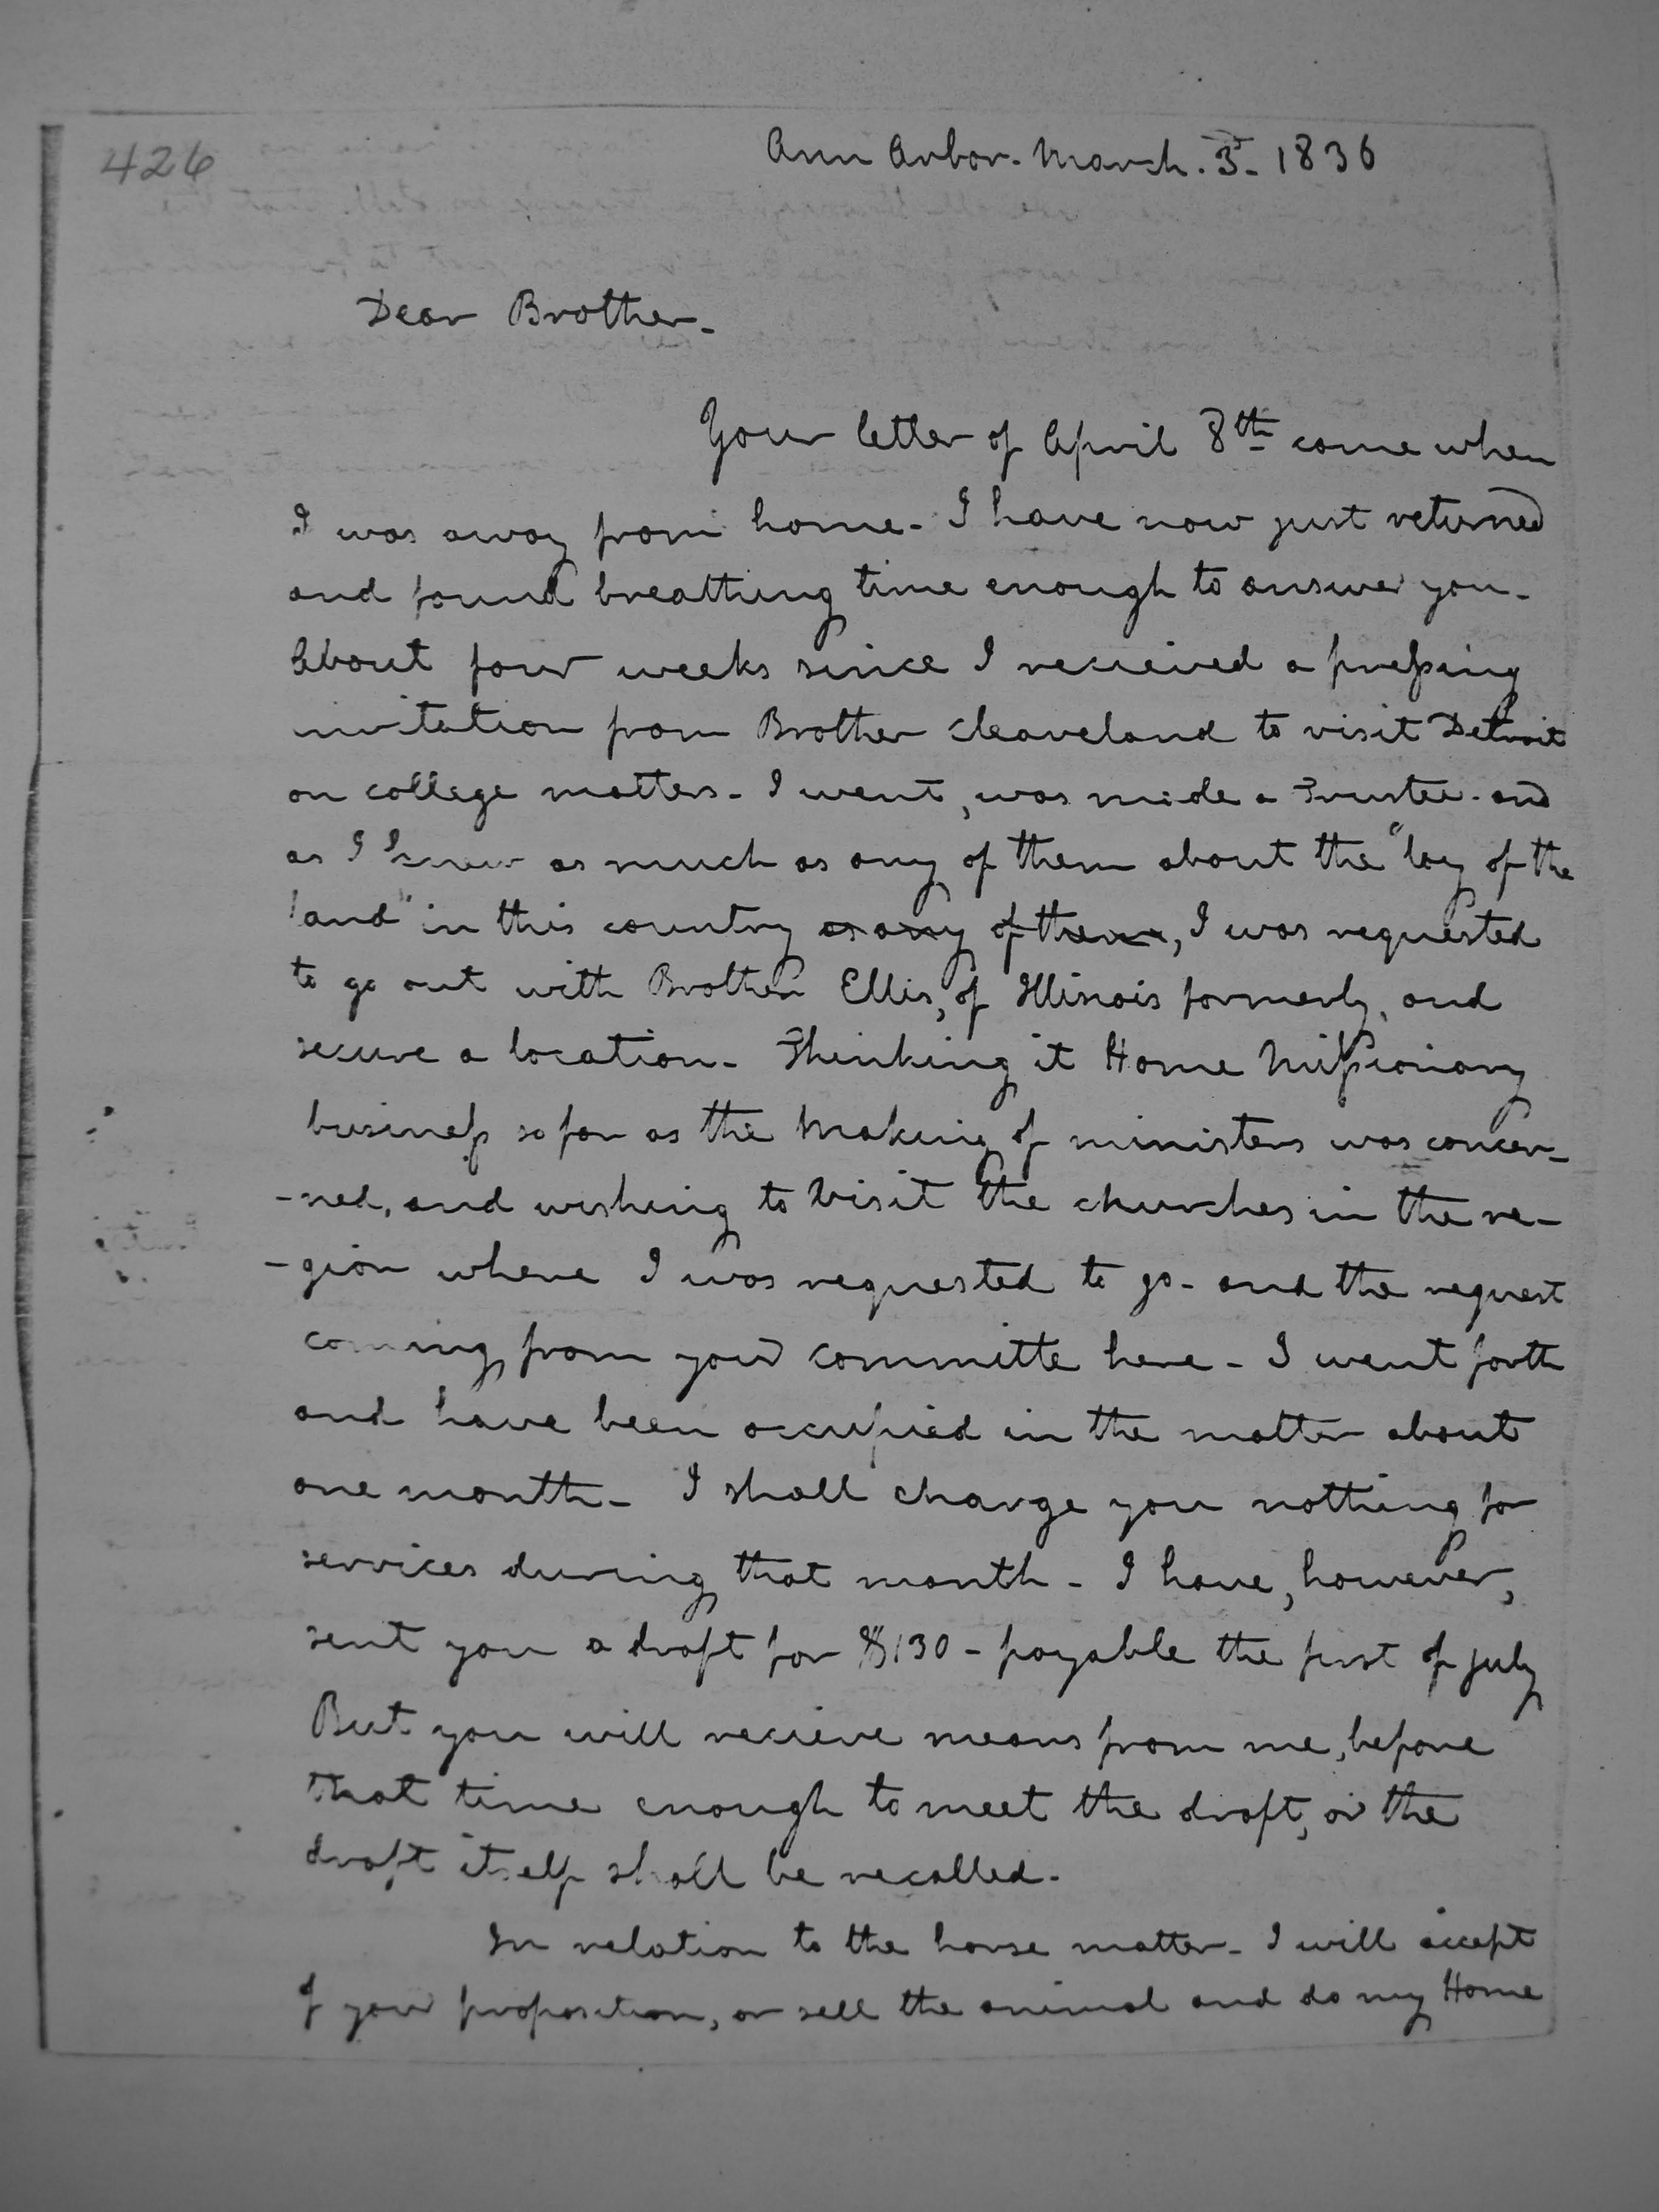 426
Ann Arbor. March. 3. 1836
Dear Brother.
Your letter of April 8th came when
I was away from home. I have now just returned
and found breathing time enough to answer you.
About four weeks since I recieved a pressing
invitation from Brother Cleaveland to visit Detroit
on college matters. I went, was made a Trustee. and
as I knew as much as any of them about the "lay of the
land" in this country as any of them, I was requested
to go out with Brother Ellis, of Illinois formerly, and
secure a location. Thinking it Home Missionary
business so far as the making of ministers was concer-
-ned, and wishing to visit the churches in the re-
-gion where I was requested to go. and the request
coming from your committe here. I went forth
and have been occupied in the matter about
one month. I shall charge you nothing for
services during that month. I have, however,
sent you a draft for $130 - payable the first of july
But you will recieve means from me, before
that time enough to meet the draft, or the
draft itself shall be recalled.
In relation to the horse matter. I will accept
of your proposition, or sell the animal and do my Home